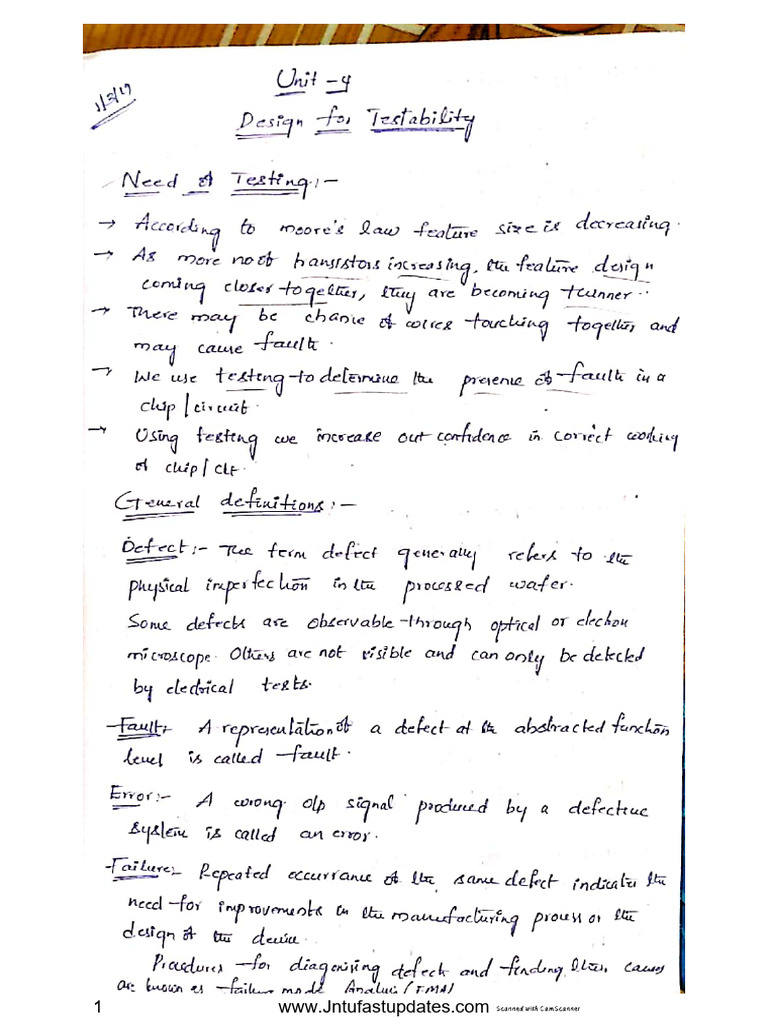 Unit - 4
1/3/19
Design for Testability
Need of Testing :-
→ According to moore's law feature size is decreasing.
→ As more no of transistors increasing, the feature design
coming closer together, they are becoming thinner..
→ There may be chance of wires touching together and
may cause fault.
→ We use testing to determine the presence of fault in a
chip/circuit.
→ Using testing we increase out confidence in correct working
of chip/ckt.
General definitions :-
Defect :- The term defect generally refers to the
physical imperfection in the processed wafer.
Some defects are observable through optical or electron
microscope. Others are not visible and can only be detected
by electrical tests.
Fault:- A representation of a defect at the abstracted function
level is called fault.
Error :- A wrong o/p signal produced by a defective
system is called an error.
Failure:- Repeated occurrance of the same defect indicates the
need for improvements in the manufacturing process or the
design of the device.
Procedures for diagonising defect and finding their causes
are known as failure mode Analysis (FMA)
1 www.Jntufastupdates.com Scanned with CamScanner